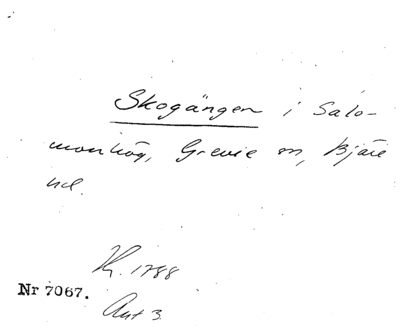 Skogängen i Salo-
monhög, Grevie sn, Bjäre
hd.
K. 1788
Nr 7067.
Akt 3.